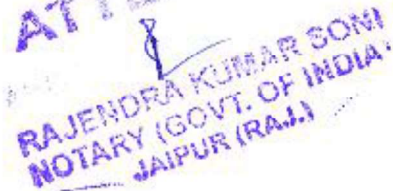 RAJENDRA KUMAR SONI
NOTARY (GOVT. OF INDIA)
JAIPUR (RAJ.)